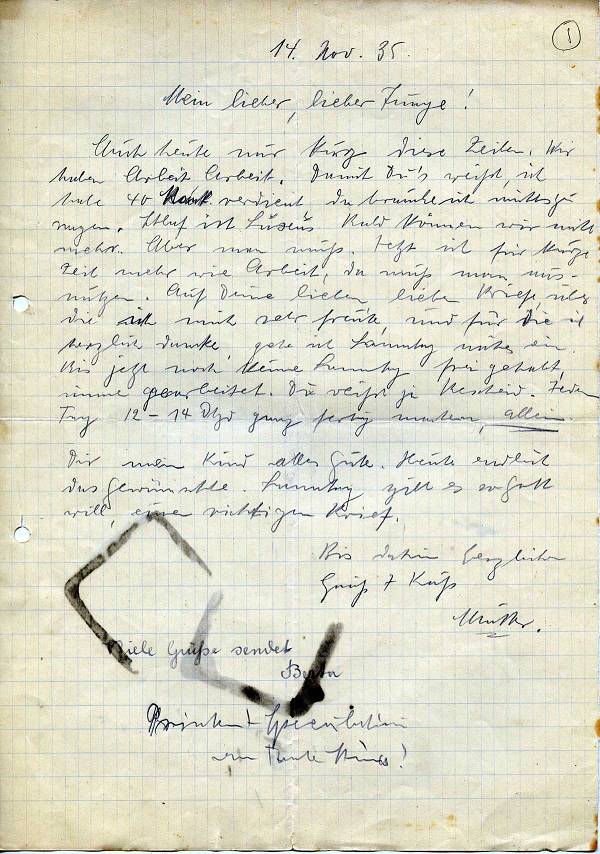 1
14. Nov. 35.
Mein lieber, lieber Junge!
Auch heute nur kurz diese Zeilen. Wir
haben Arbeit Arbeit. Damit Du's weißt, ich
habe 40 Mark verdient da brauche ich nichts zu
sagen. Schlaf ist Luxus bald können wir nicht
mehr. Aber man muß. Jetzt ist für kurze
Zeit mehr wie Arbeit, da muß man aus-
nützen. Auf Deine lieben lieben Briefe über
die ich mich sehr freute, und für die ich
herzlich danke, gehe ich Sonntag näher ein.
Bis jetzt noch keine Sonntag frei gehabt,
immer gearbeitet. Du weißt ja Bescheid. Jeden
Tag 12 - 14 Dtzd ganz fertig machen, allein.
Dir mein Kind alles Gute. Heute endlich
das Gewünschte. Sonntag gibt es so Gott
will, einen richtigen Brief.
Bis dahin herzlichen
Gruß & Kuß
Mutter.
Viele Grüße sendet
Berta
Printen + Speculatius
von Tante